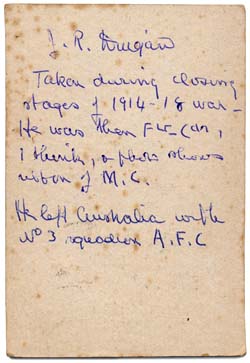 J. R. Duigan
Taken during closing
stages of 1914-18 war-
He was then Flt-Cdr,
I think, & photo shows
ribbon of M.C.
He left Australia with
No 3 squadron A.F.C